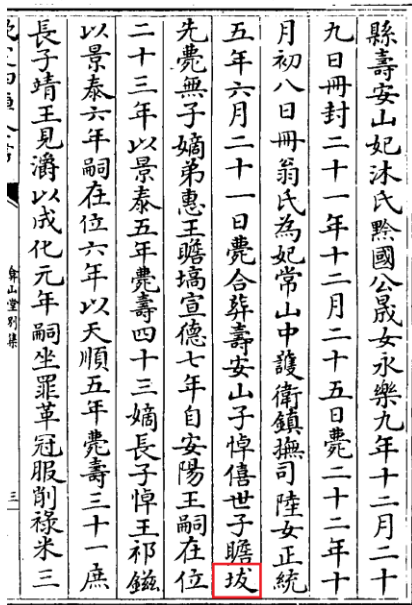 縣壽安山妃沐氏黔國公晟女永樂九年十二月二十
九日冊封二十一年十二月二十五日薨二十二年十
月初八日冊翁氏為妃常山中護衛鎮撫司陸女正統
五年六月二十一日薨合葬壽安山子悼僖世子瞻坺
先薨無子嫡弟惠王瞻塙宣德七年自安陽王嗣在位
二十三年以景泰五年薨壽四十三嫡長子悼王祁鎡
以景泰六年嗣在位六年以天順五年薨壽三十一庶
長子靖王見潏以成化元年嗣坐罪革冠服削祿米三
弇山堂別集
三